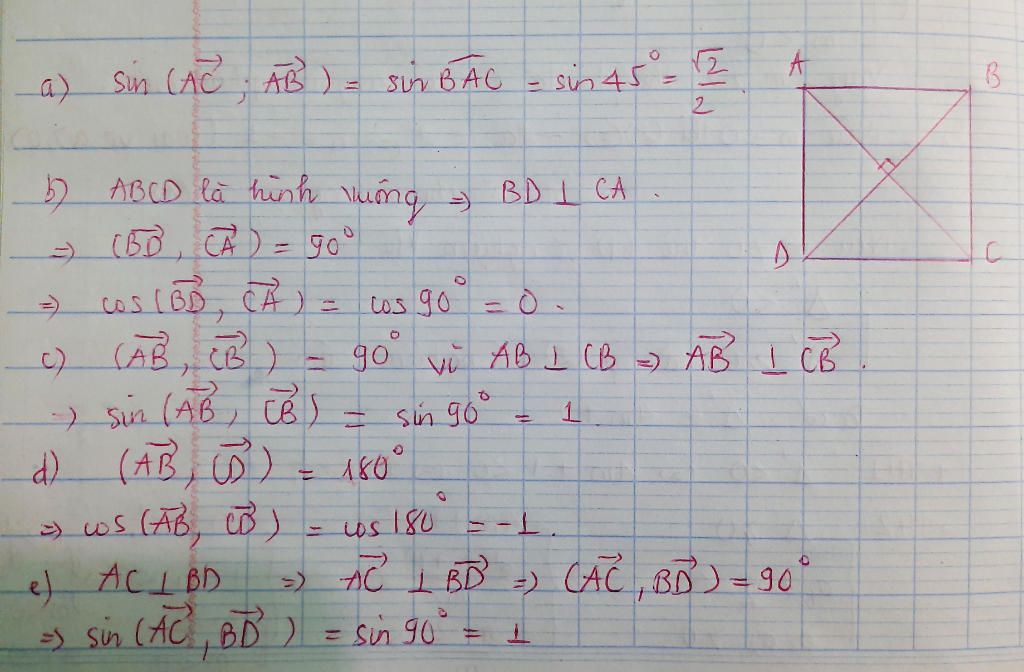 a) sin (AC⃗ ; AB⃗ ) = sin B̂AC = sin 45° = √2/2 .
A B
b) ABCD là hình vuông => BD ⊥ CA .
=> (BD⃗ , CA⃗ ) = 90°
D C
=> cos (BD⃗ , CA⃗ ) = cos 90° = 0 .
c) (AB⃗ , CB⃗ ) = 90° vì AB ⊥ CB => AB⃗ ⊥ CB⃗ .
=> sin (AB⃗ , CB⃗ ) = sin 90° = 1
d) (AB⃗ , CD⃗ ) = 180°
=> cos (AB⃗ , CD⃗ ) = cos 180° = -1 .
e) AC ⊥ BD => AC⃗ ⊥ BD⃗ => (AC⃗ , BD⃗ ) = 90°
=> sin (AC⃗ , BD⃗ ) = sin 90° = 1